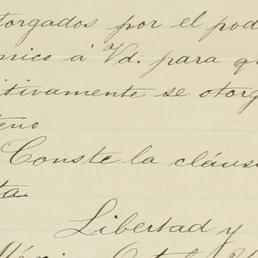 torgados por el pod
nico á Vd. para q
itivamente se otorg
teno
Conste la cláus
ta
Libertad y
Méxi Octub